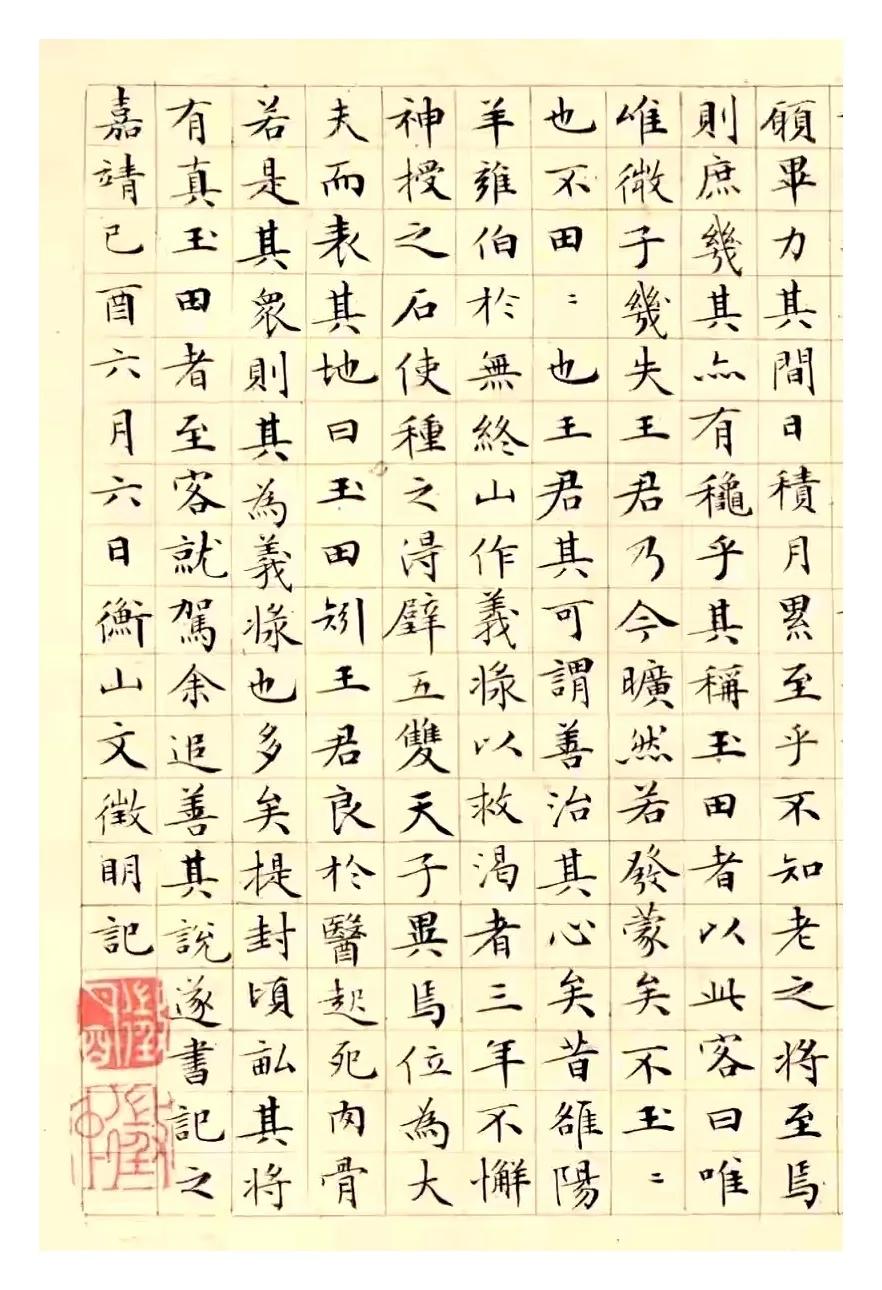 願畢力其間日積月累至乎不知老之将至焉
則庶幾其亦有穐乎其稱玉田者以此客曰唯
唯微子幾失王君乃今曠然若發蒙矣不玉〻
也不田〻也王君其可謂善治其心矣昔雒陽
羊雍伯於無終山作義漿以救渴者三年不懈
神授之石使種之得璧五雙天子異焉位為大
夫而表其地曰玉田矧王君良於醫起死肉骨
若是其衆則其為義漿也多矣提封頃畝其将
有真玉田者至客就駕余追善其說遂書記之
嘉靖己酉六月六日衡山文徵明記